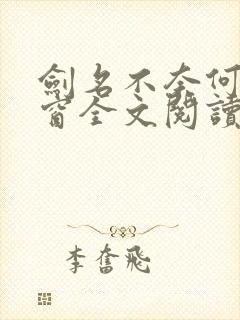 劍名不奈何
窗全文閱讀
李奮飛